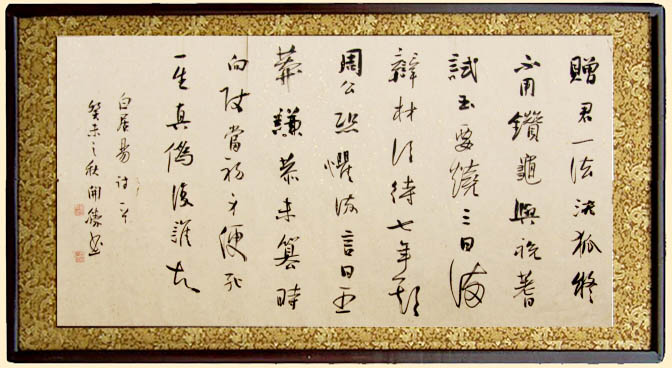 贈君一法決狐疑
不用鑽龜與祝蓍
試玉要燒三日滿
辨材須待七年期
周公恐懼流言日王
莽謙恭未篡時
向使當初身便死
一生真偽復誰知
白居易詩一首
癸未之秋開書